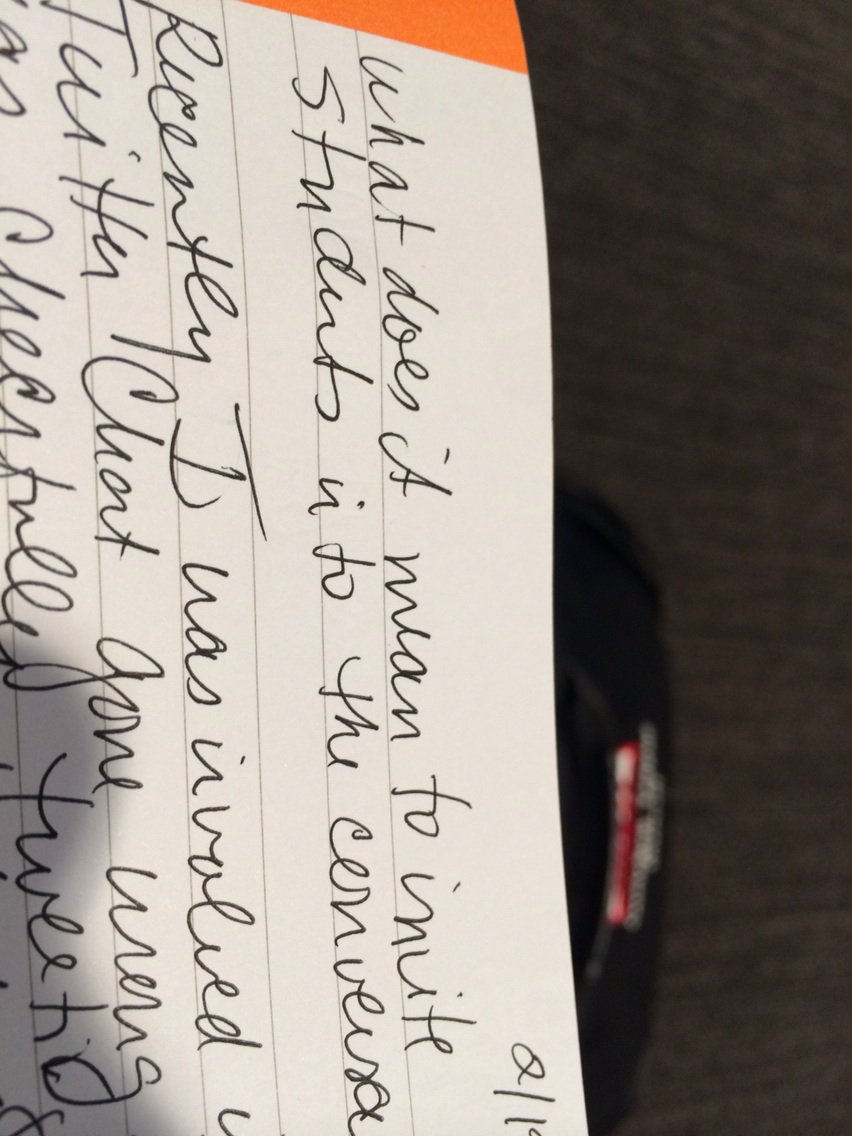 2/19
What does it mean to invite
students into the conversa
Recently I was involved
Twitter Chat gone wrong
as cheerfully tweetid